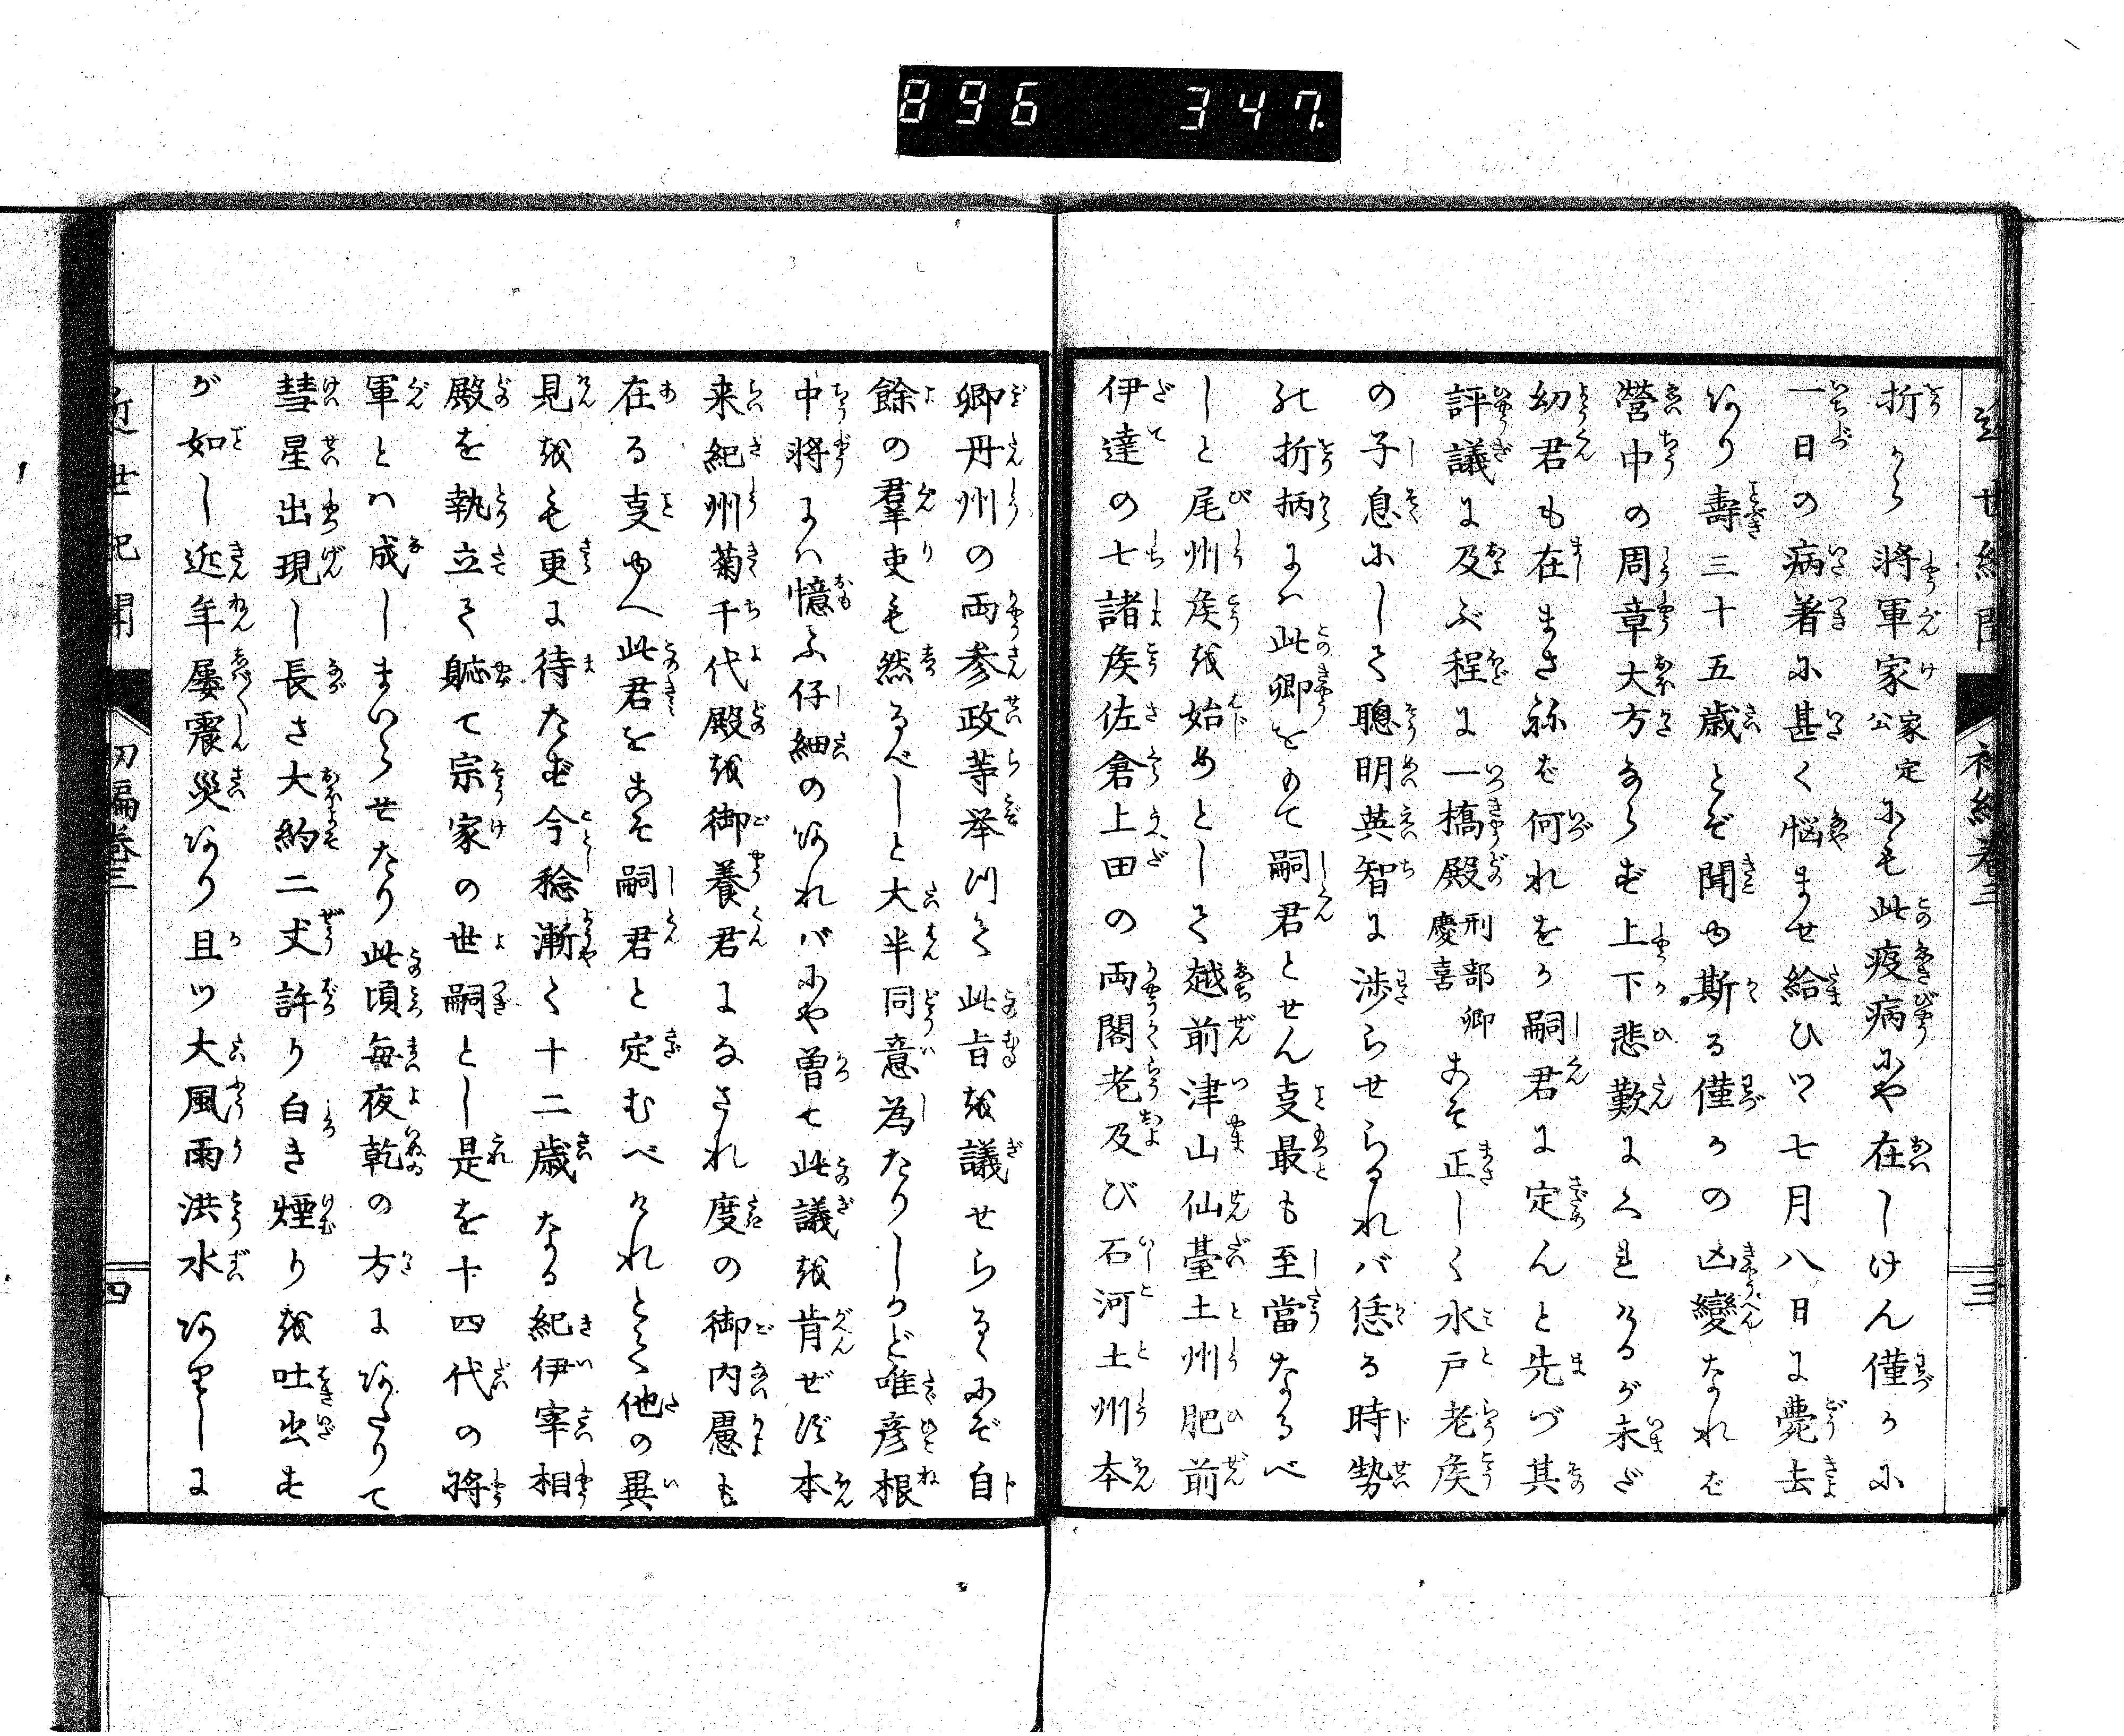 896 347.
折から將軍家家定公にも此疫病にや在しけん僅かに
一日の病著に甚く悩ませ給ひつゝ七月八日に薨去
あり壽三十五歳とぞ聞ゆ斯る僅かの凶變なれば
營中の周章大方ならず上下悲歎にくれけるが未だ
幼君も在まさねば何れをか嗣君に定んと先づ其
評議に及ぶ程に一橋殿刑部卿慶喜こそ正しく水戸老矦
の子息にして聰明英智に渉らせらるれバ恁る時勢
の折柄にハ此卿をもて嗣君とせん事最も至當なるべ
しと尾州矦を始めとして越前津山仙臺土州肥前
伊達の七諸矦佐倉上田の両閣老及び石河土州本
近世紀聞 初編巻三 三
卿丹州の両参政等挙つて此旨を議せらるゝにぞ自
餘の羣吏も然るべしと大半同意為たりしかど唯彦根
中將にハ憶ふ仔細のあれバにや曽て此議を肯ぜず本
来紀州菊千代殿を御養君になされ度の御内慮も
在る事ゆへ此君をこそ嗣君と定むべけれとて他の異
見をも更に待たず今稔漸く十二歳なる紀伊宰相
殿を執立て躮て宗家の世嗣とし是を十四代の將
軍とハ成しまいらせたり此頃毎夜乾の方にあたりて
彗星出現し長さ大約二丈許り白き煙りを吐出す
が如し近年屡震災あり且ツ大風雨洪水ありしに
近世紀聞 初編巻三 四